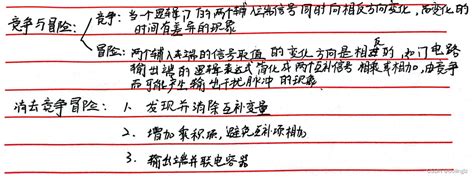 竞争与冒险:
竞争: 当一个逻辑门的两个输入端信号同时向相反方向变化, 而变化的
时间有差异的现象
冒险: 两个输入端的信号取值的变化方向是相反的, 如门电路
输出端的逻辑表达式简化成两个互补信号相乘或相加, 由竞争
而可能产生输出干扰脉冲的现象
消去竞争冒险: 1. 发现并消除互补变量
2. 增加乘积项, 避免互补项相加
3. 输出端并联电容器